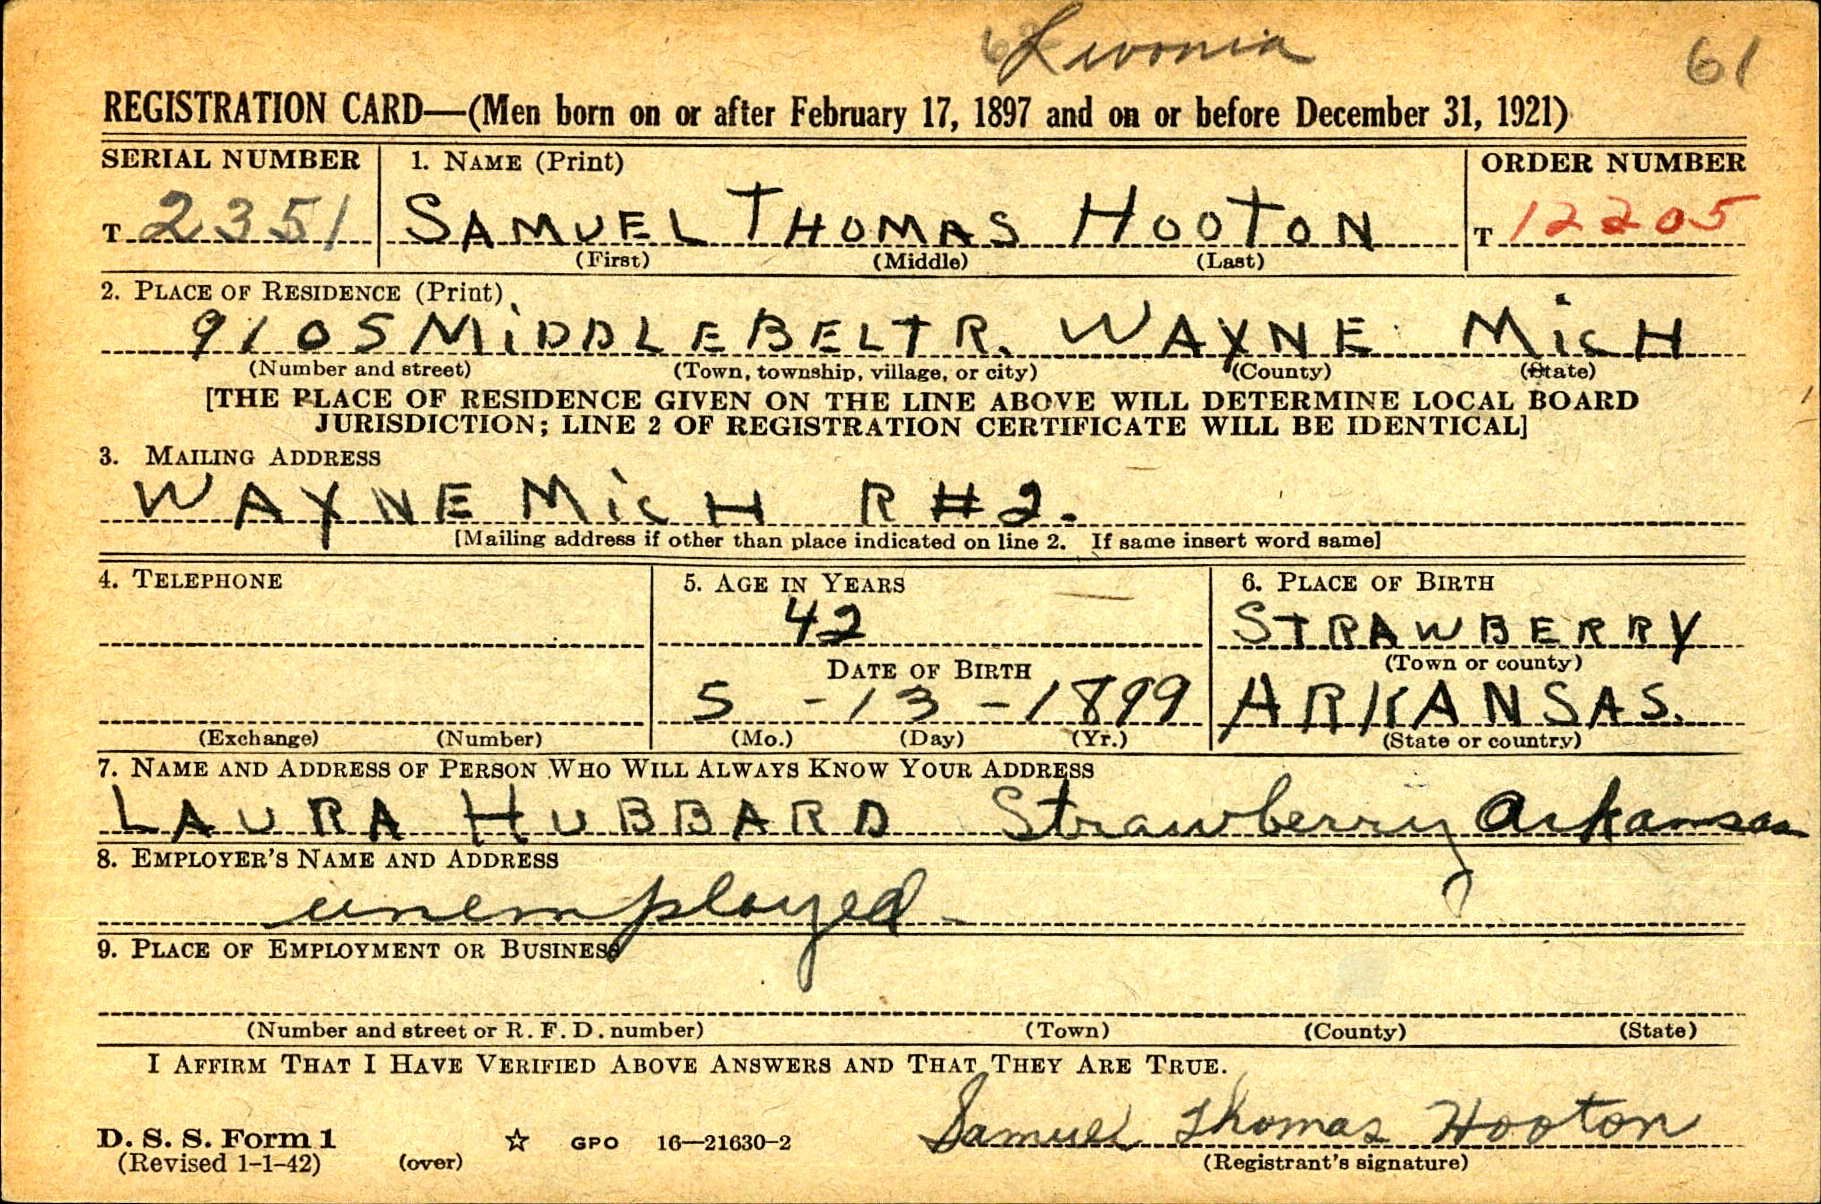 Livonia 61
REGISTRATION CARD—(Men born on or after February 17, 1897 and on or before December 31, 1921)
SERIAL NUMBER 1. NAME (Print) ORDER NUMBER
T 2351 SAMUEL THOMAS HOOTON T 12205
(First) (Middle) (Last)
2. PLACE OF RESIDENCE (Print)
9105 MiDDLEBELT R. WAYNE MicH
(Number and street) (Town, township, village, or city) (County) (State)
[THE PLACE OF RESIDENCE GIVEN ON THE LINE ABOVE WILL DETERMINE LOCAL BOARD
JURISDICTION; LINE 2 OF REGISTRATION CERTIFICATE WILL BE IDENTICAL]
3. MAILING ADDRESS
WAYNE MicH R #2.
[Mailing address if other than place indicated on line 2. If same insert word same]
4. TELEPHONE 5. AGE IN YEARS 6. PLACE OF BIRTH
42 STRAWBERRY
DATE OF BIRTH (Town or county)
5 - 13 - 1899 ARKANSAS.
(Exchange) (Number) (Mo.) (Day) (Yr.) (State or country)
7. NAME AND ADDRESS OF PERSON WHO WILL ALWAYS KNOW YOUR ADDRESS
LAURA HUBBARD Strawberry Arkansas
8. EMPLOYER'S NAME AND ADDRESS
unemployed
9. PLACE OF EMPLOYMENT OR BUSINESS
(Number and street or R. F. D. number) (Town) (County) (State)
I AFFIRM THAT I HAVE VERIFIED ABOVE ANSWERS AND THAT THEY ARE TRUE.
Samuel Thomas Hooton
D. S. S. Form 1 GPO 16—21630-2
(Revised 1-1-42) (over) (Registrant's signature)